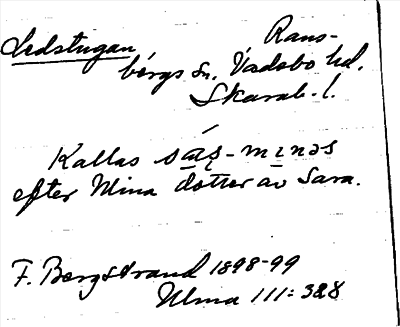 Ledstugan, Rans-
bergs sn. Vadsbo hd.
Skarab. l.
Kallas sáş-mınəs
efter Mina dotter av Sara.
F. Bergstrand 1898-99
Ulma 111:328